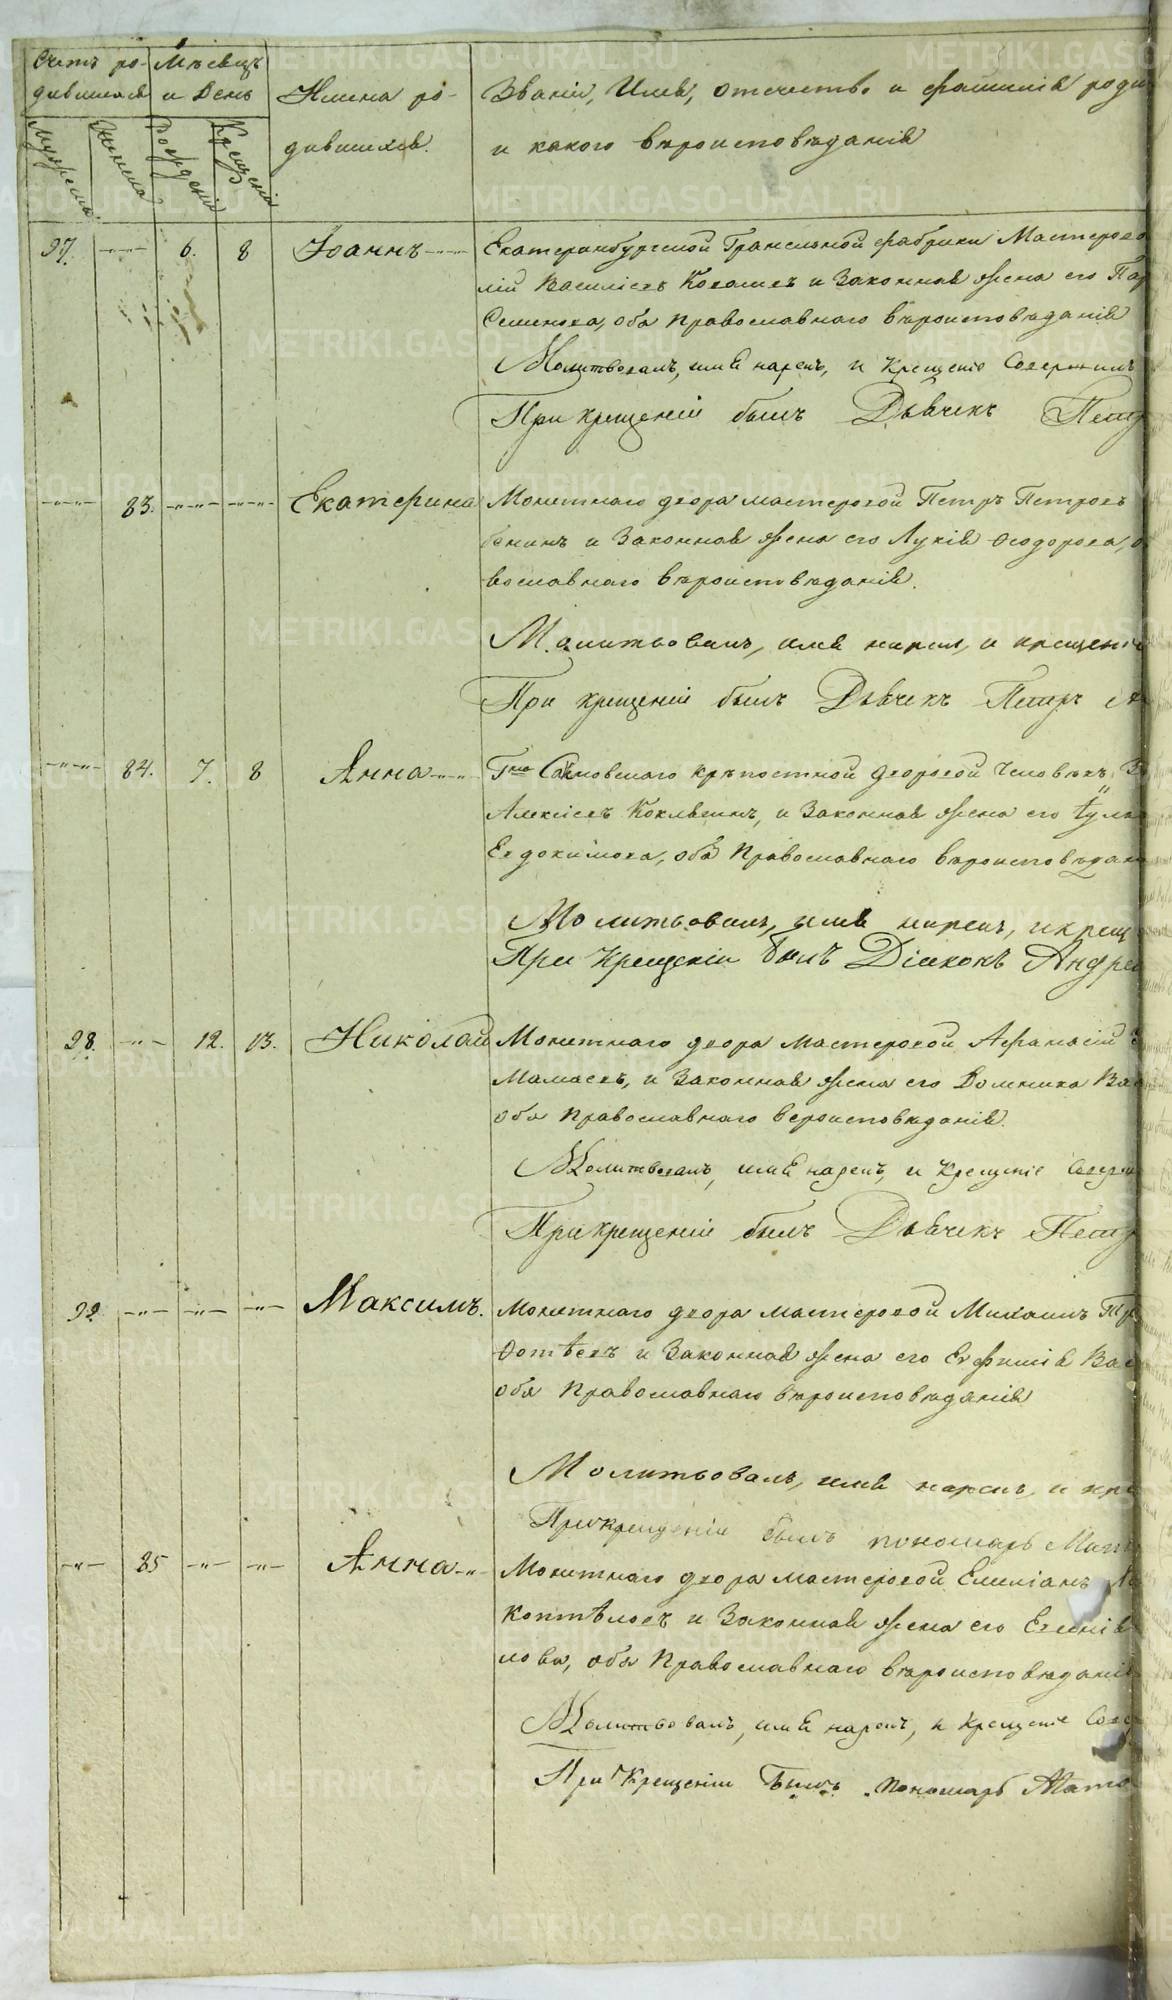 Счетъ ро-
дившихся
Мѣсяцъ
и День
Имена ро-
дившихся.
Званіе, Имя, отечество и фамилія роди
и какого вѣроисповѣданія
Мужеска
Женска
Рожденія
Крещенія
97. 6. 8 Іоаннъ Екатеринбургской Гранильной фабрики Мастерово
лій Василіевъ и Законная жена его
Семенова, оба Православнаго вѣроисповѣданія
Молитвовалъ, имя нарекъ, и Крещеніе Совершилъ
При крещеніи былъ Дьячекъ Петр
83. Екатерина Монетнаго двора мастеровой Петръ Петровъ
и Законная жена его Лукія Ѳеодорова,
вославнаго вѣроисповѣданія.
Молитвовалъ, имя нарекъ, и крещені
При крещеніи былъ Дьячекъ Петръ
84. 7. 8 Анна крѣпостной дворовой человѣкъ
Алексіевъ и Законная жена его
Евдокимова, оба Православнаго вѣроисповѣдан
Молитвовалъ, имя нарекъ, и крещ
При Крещеніи былъ Діаконъ Андре
98. 12. 13. Николай Монетнаго двора мастеровой Афанасій
Мамаевъ, и Законная жена его Домника Вас
оба Православнаго вероисповѣданія.
Молитвовалъ, имя нарекъ, и Крещеніе Соверш
При крещеніи былъ Дьячекъ Петр
99. Максимъ. Монетнаго двора мастеровой Михаилъ
Фотѣевъ и Законная жена его Евфимія Вас
оба Православнаго вѣроисповѣданія
Молитвовалъ, имя нарекъ, и кре
При крещеніи былъ пономарь
85 Анна Монетнаго двора мастеровой Емиліанъ
Коптѣловъ и Законная жена его Евгенія
лова, оба Православнаго вѣроисповѣданія
Молитвовалъ, имя нарекъ, и Крещеніе Сове
При Крещеніи былъ пономарь
METRIKI.GASO-URAL.RU